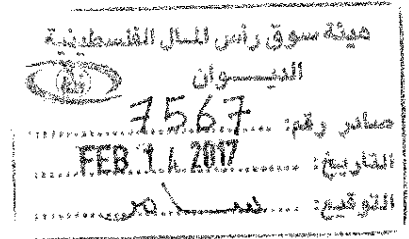 هيئة سوق رأس المال الفلسطينية
الديـــــوان
صادر رقم: 7567
التاريخ: FEB 14 2017
التوقيع: